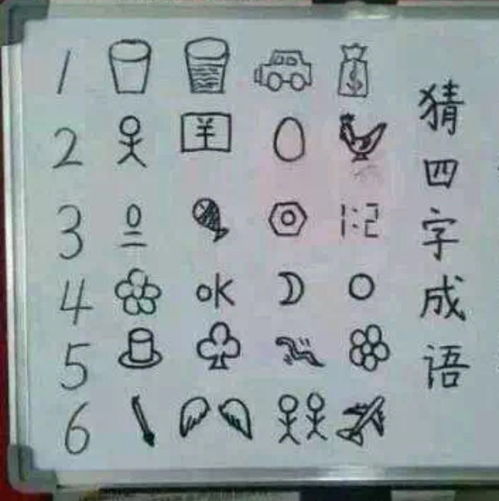 1 $
2 ¥
3 1:2
4 OK
5
6
猜四字成语